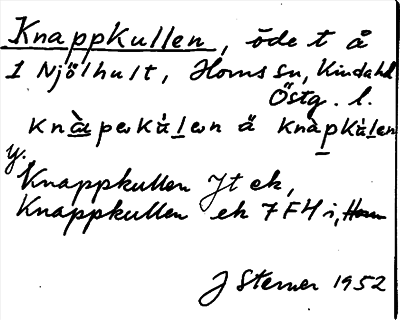 Knappkullen, öde t å
1 Njölhult, Horns sn, Kinda hd
Östg. l.
knàpəkálən ä knàpkálen
y.
Knappkullen Jt ek,
Knappkullen ek 7F4 i, Horn
J Sterner 1952